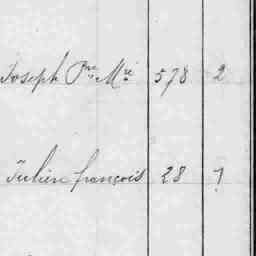 Joseph Pre Mie 578 2
Julien françois 28 7